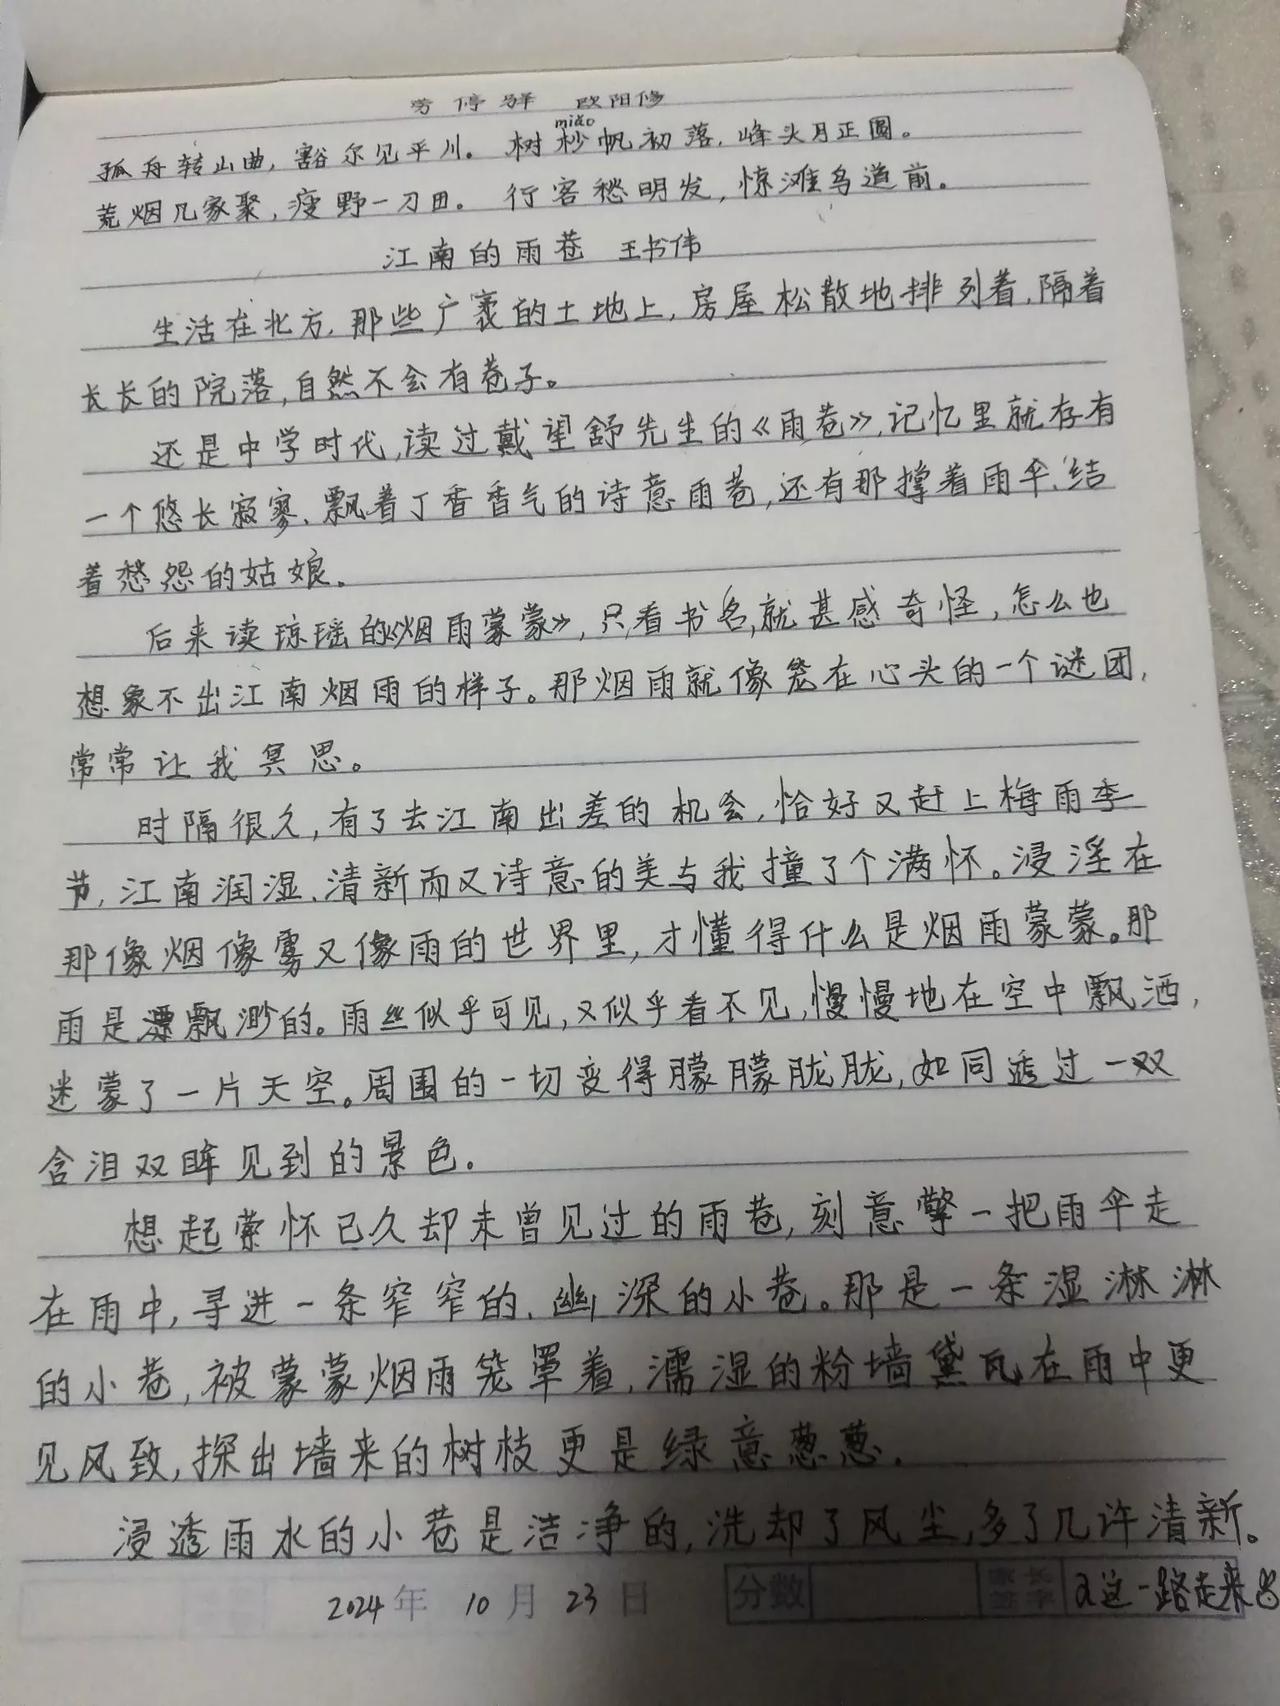 劳停驿 欧阳修
miǎo
孤舟转山曲，豁尔见平川。树杪帆初落，峰头月正圆。
荒烟几家聚，瘦野一刀田。行客愁明发，惊滩鸟道前。
江南的雨巷 王书伟
生活在北方，那些广袤的土地上，房屋松散地排列着，隔着
长长的院落，自然不会有巷子。
还是中学时代，读过戴望舒先生的《雨巷》，记忆里就存有
一个悠长寂寥、飘着丁香香气的诗意雨巷，还有那撑着雨伞、结
着愁怨的姑娘。
后来读琼瑶的《烟雨蒙蒙》，只看书名，就甚感奇怪，怎么也
想象不出江南烟雨的样子。那烟雨就像笼在心头的一个谜团，
常常让我冥思。
时隔很久，有了去江南出差的机会，恰好又赶上梅雨季
节，江南润湿、清新而又诗意的美与我撞了个满怀。浸淫在
那像烟像雾又像雨的世界里，才懂得什么是烟雨蒙蒙。那
雨是飘渺的。雨丝似乎可见，又似乎看不见，慢慢地在空中飘洒，
迷蒙了一片天空。周围的一切变得朦朦胧胧，如同透过一双
含泪双眸见到的景色。
想起萦怀已久却未曾见过的雨巷，刻意擎一把雨伞走
在雨中，寻进一条窄窄的、幽深的小巷。那是一条湿淋淋
的小巷，被蒙蒙烟雨笼罩着，濡湿的粉墙黛瓦在雨中更
见风致，探出墙来的树枝更是绿意葱葱。
浸透雨水的小巷是洁净的，洗却了风尘，多了几许清新。
2024年 10月 23日 分数 这一路走来